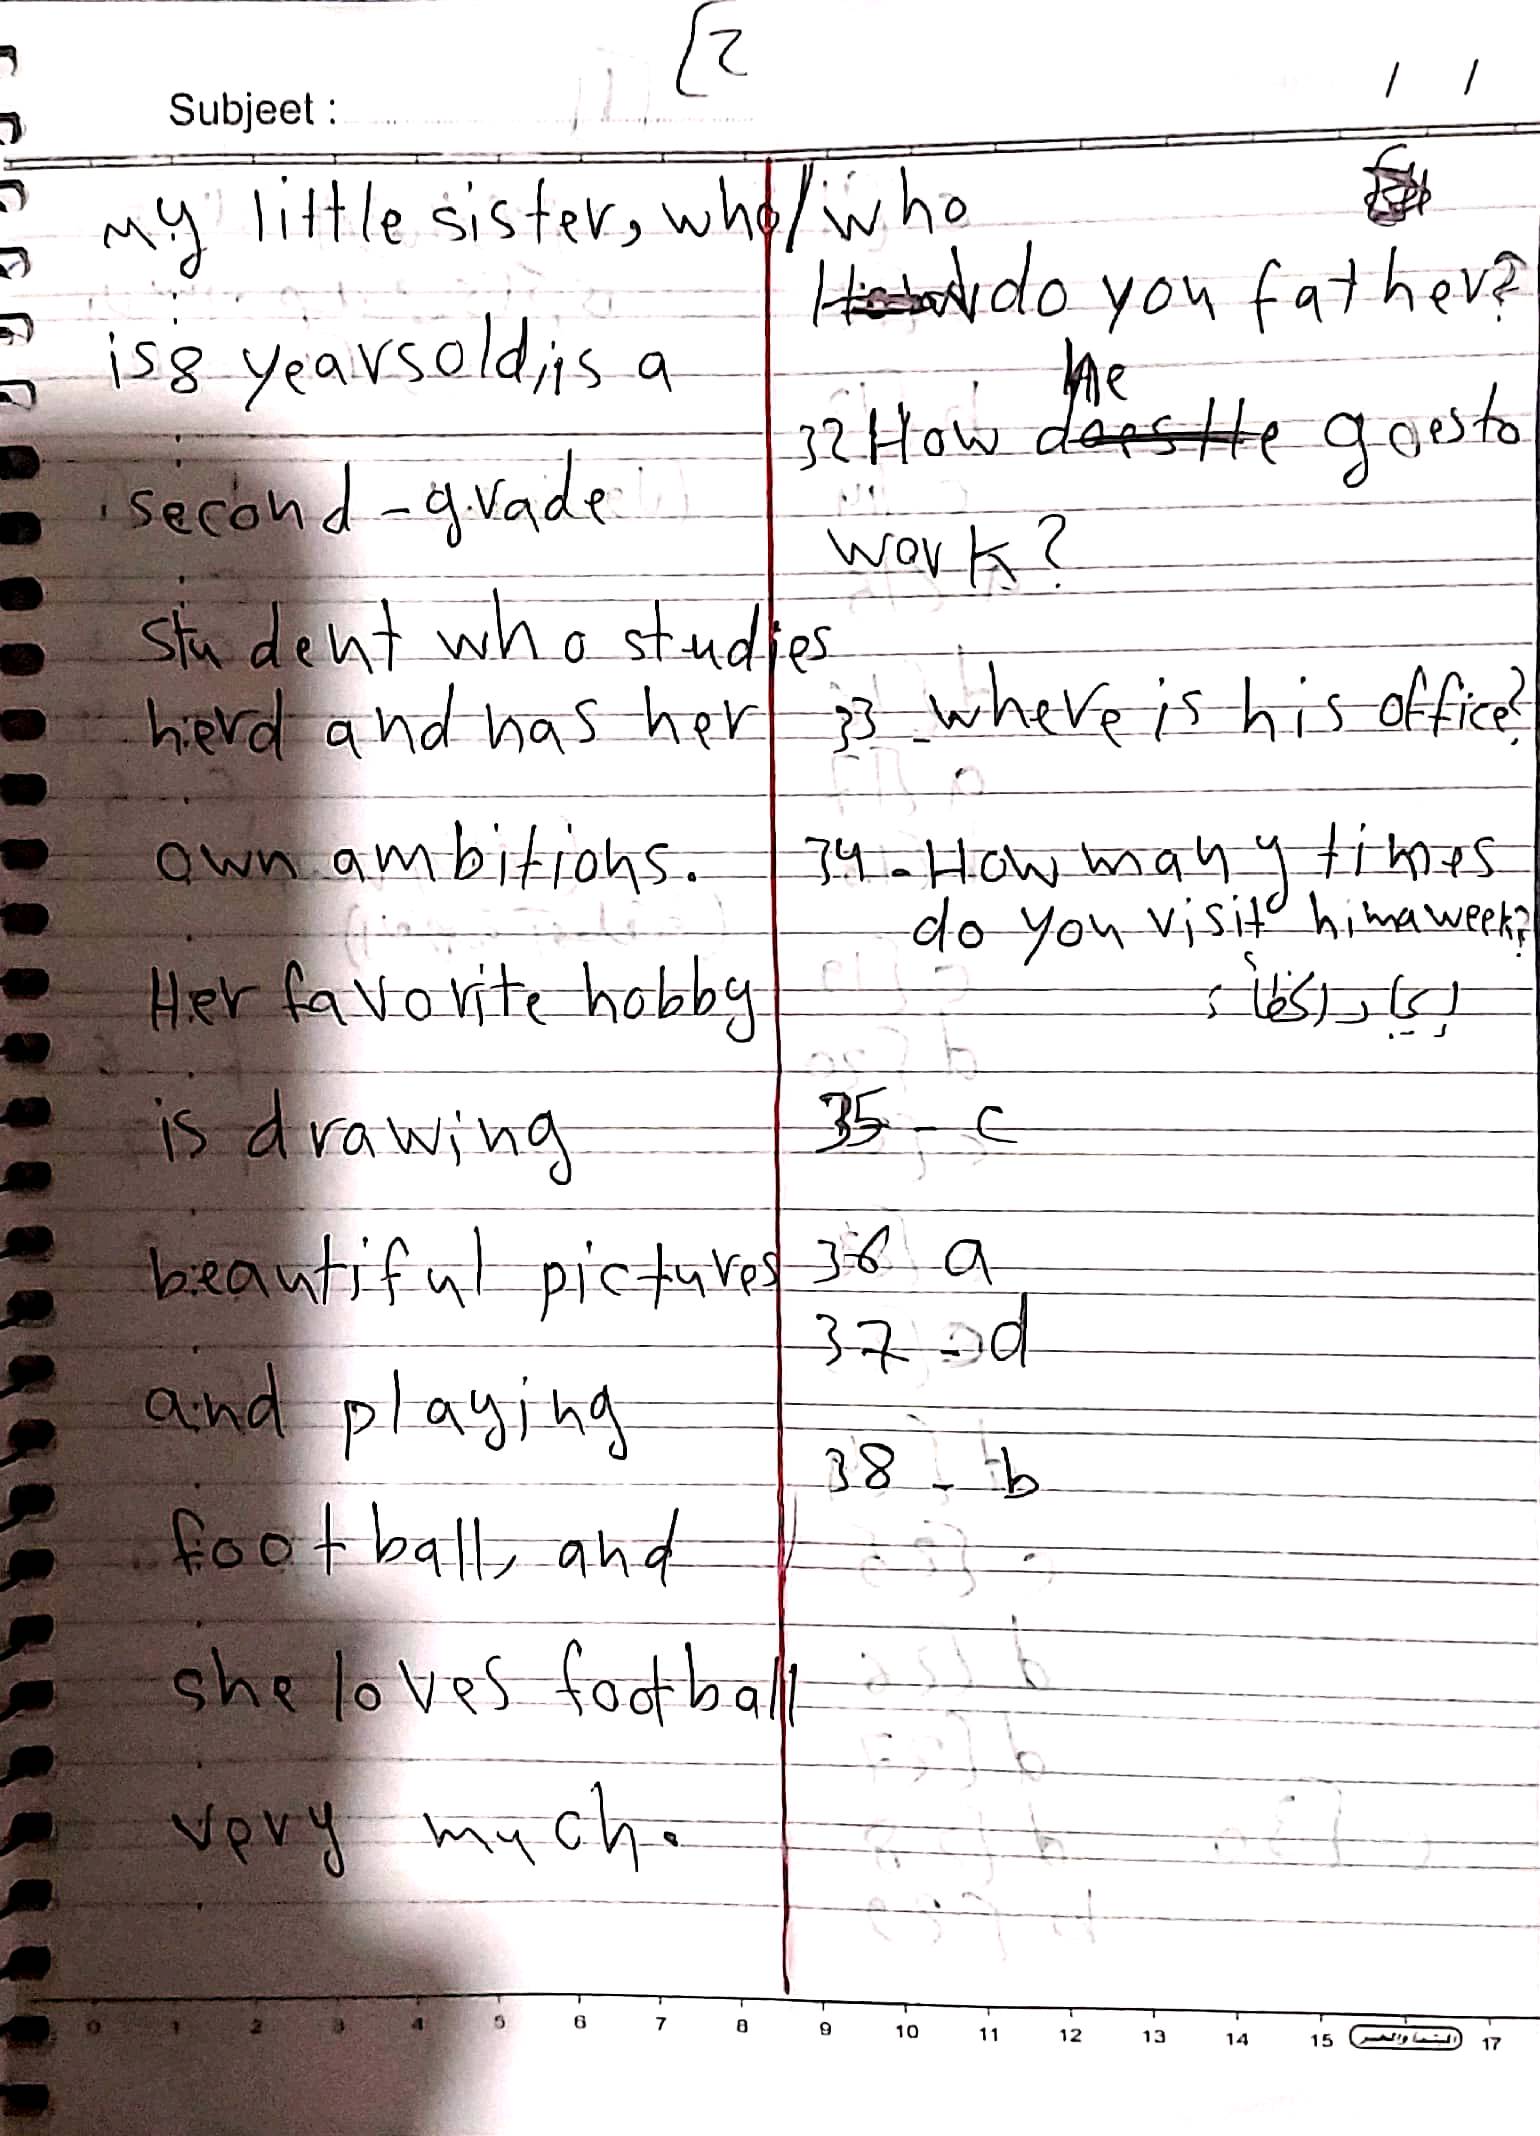 [2
Subjeet :
/ /
my little sister, who
is 8 years old, is a
second-grade
student who studies
herd and has her
own ambitions.
Her favorite hobby
is drawing
beautiful pictures
and playing
football, and
she loves football
very much.
/ who
do you father?
he
32 How goes to
work?
33 - where is his office?
34 - How many times
do you visit him a week?
35 - c
36 a
37 - d
38 - b
0 1 2 3 4 5 6 7 8 9 10 11 12 13 14 15 17